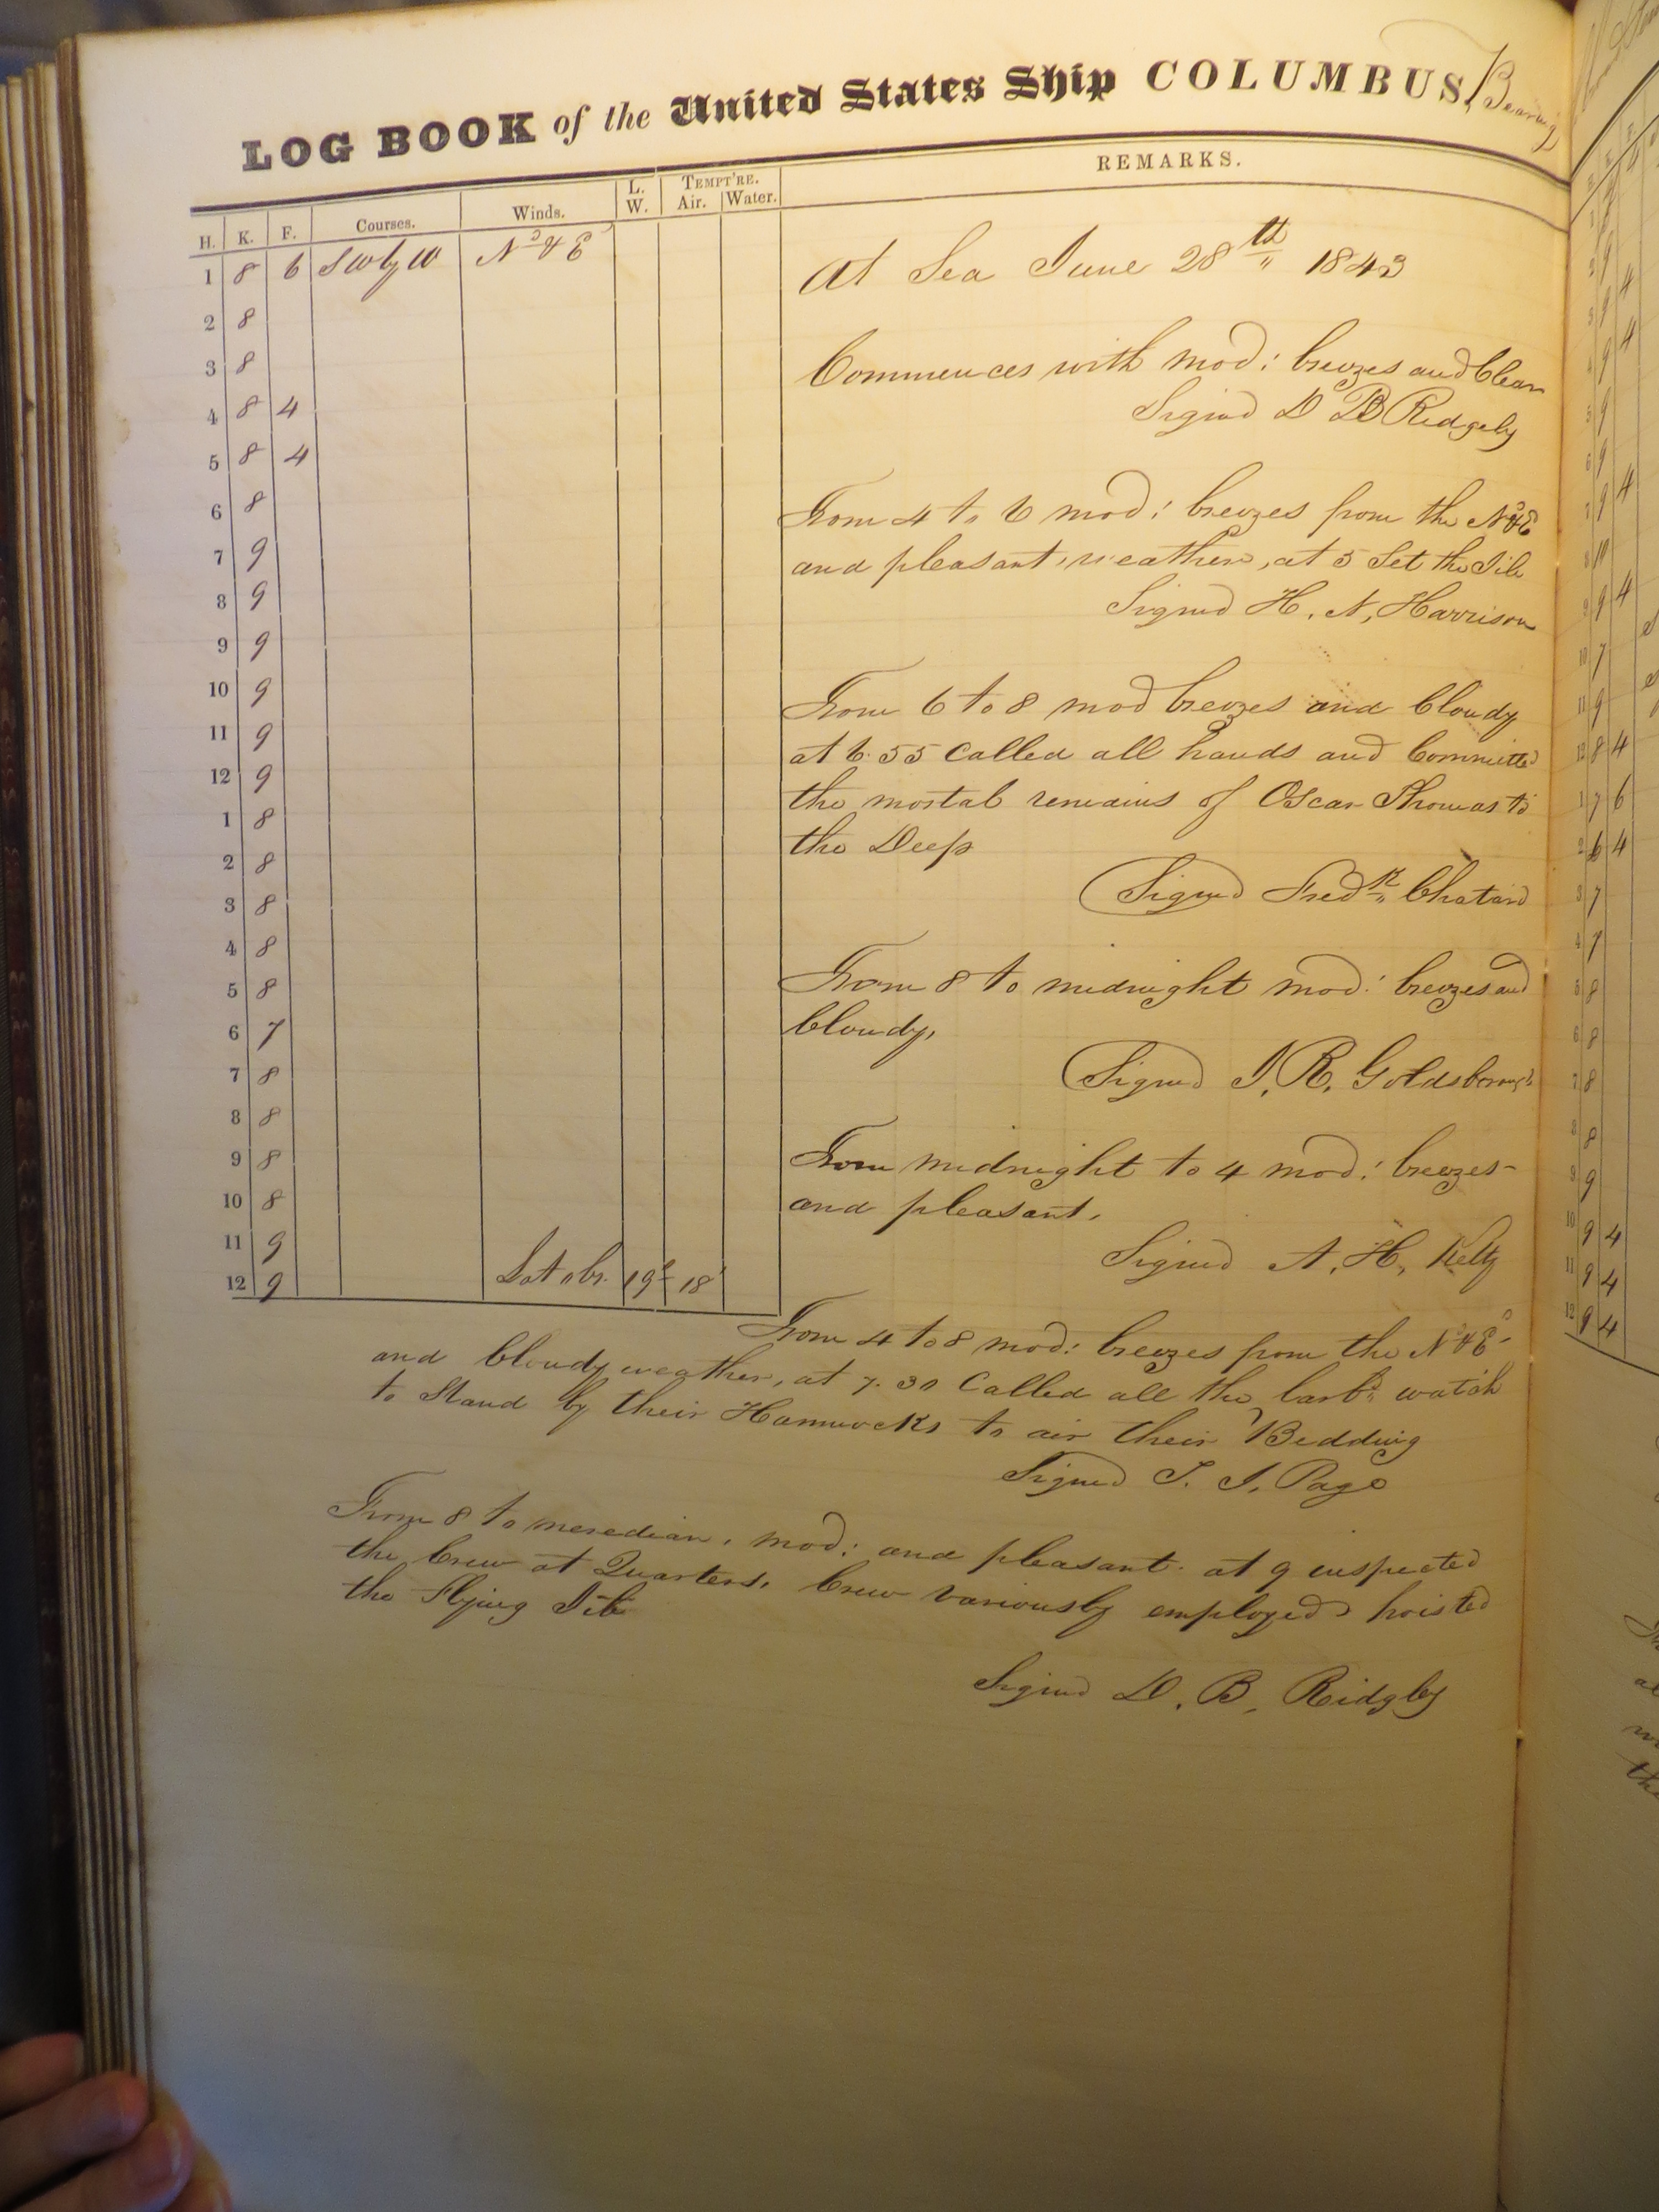 LOG BOOK of the United States Ship COLUMBUS, Bearing
H. K. F. Courses. Winds. L. W. TEMPT'RE. Air. Water. REMARKS.
1 8 6 SW by W Nd & Ed
2 8
3 8
4 8 4
5 8 4
6 8
7 9
8 9
9 9
10 9
11 9
12 9
1 8
2 8
3 8
4 8
5 8
6 7
7 8
8 8
9 8
10 8
11 9
12 9 Lat obs. 19° 18'
At Sea June 28th 1843
Commences with mod: breezes and Clear
Signed D B Ridgely
From 4 to 6 mod: breezes from the Nd & Ed
and pleasant weather, at 5 Set the Jib
Signed H. N. Harrison
From 6 to 8 mod breezes and Cloudy
at 6.55 Called all hands and Committed
the mortal remains of Oscar Thomas to
the Deep
Signed Fredk Chatard
From 8 to midnight mod: breezes and
Cloudy,
Signed J. R. Goldsborough
From midnight to 4 mod: breezes
and pleasant,
Signed A. H. Kelty
From 4 to 8 mod: breezes from the Nd & Ed
and Cloudy weather, at 7.30 Called all the larbd watch
to Stand by their Hammocks to air their Bedding
Signed T. J. Page
From 8 to meredian, mod: and pleasant. at 9 inspected
the Crew at Quarters. Crew variously employed hoisted
the Flying Jib
Signed D. B. Ridgely